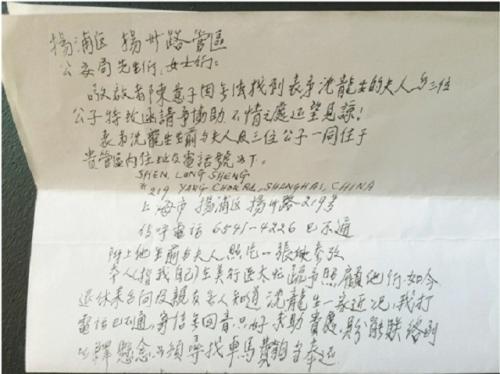 揚浦区 揚州路管區
公安局先生们、女士们:
敬啟者陳意子因无法找到表弟沈龍生的夫人与三位
公子特致函請予協助、不情之處还望見諒!
表弟沈龍生生前与夫人及三位公子一同住于
贵管區内住址及電話號如下。
SHEN, LONG SHENG
# 219 YANG CHOW RD. SHANGHAI, CHINA
上海市 揚浦区 揚州路 219号
传呼電話 6541-4226 已不通
附上他生前与夫人照片一張做参考
本人(指我自己)在美行医太忙疏于照顧他们、如今
退休来台问及親友无人知道沈龍生一家近况、我打
電話已不通、寄信无回音、只好求助贵處、盼能联络到
以釋懸念、必須尋找車馬費